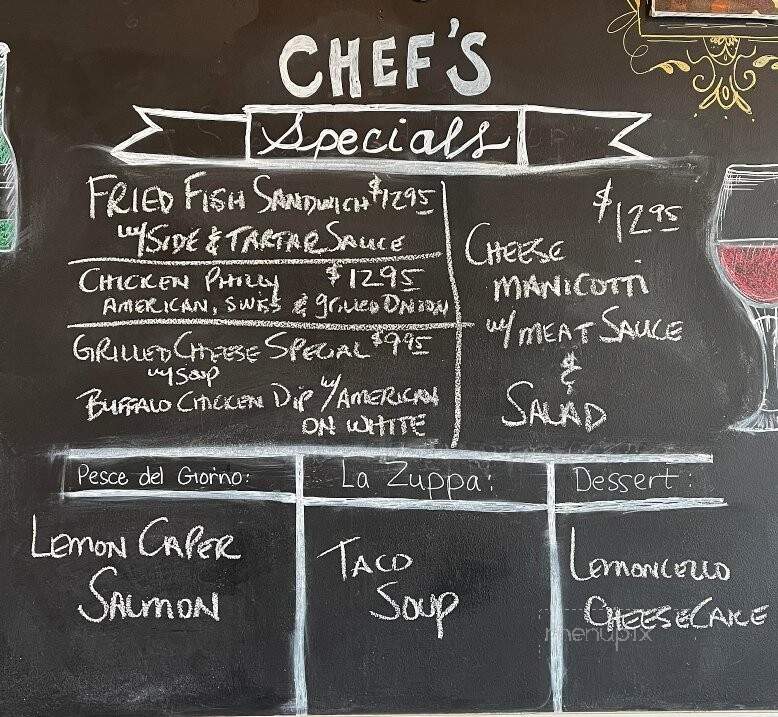 CHEF'S
Specials
FRIED FISH SANDWICH $12.95
w/ SIDE & TARTAR SAUCE
CHICKEN PHILLY $12.95
AMERICAN, SWISS & GRILLED ONION
GRILLED CHEESE SPECIAL $9.95
w/ SOUP
BUFFALO CHICKEN DIP w/ AMERICAN
ON WHITE
$12.95
CHEESE
MANICOTTI
w/ MEAT SAUCE
&
SALAD
Pesce del Giorno:
LEMON CAPER
SALMON
La Zuppa:
TACO
SOUP
Dessert:
LEMONCELLO
CHEESECAKE
menupix